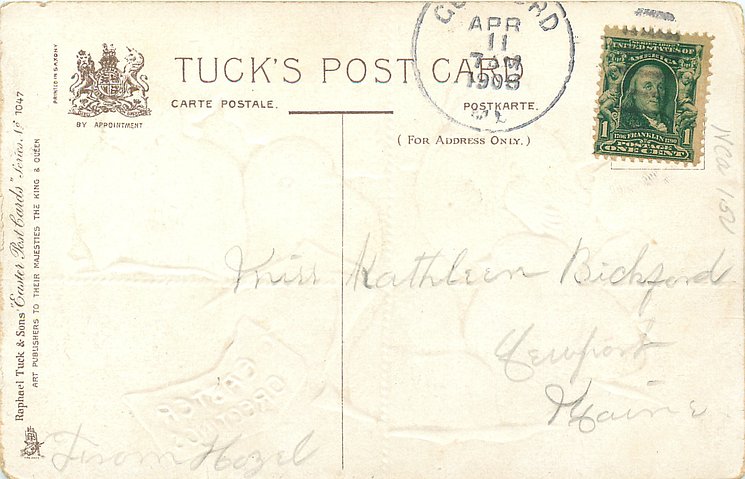 PRINTED IN SAXONY
BY APPOINTMENT
TUCK'S POST CARD
CARTE POSTALE.
POSTKARTE.
( FOR ADDRESS ONLY. )
APR
11
1908
UNITED STATES OF
AMERICA
1
FRANKLIN
POSTAGE
ONE CENT
Raphael Tuck & Sons' "Easter Post Cards" Series Nº 1047
ART PUBLISHERS TO THEIR MAJESTIES THE KING & QUEEN
Miss Kathleen Bickford
Newport
Maine
EASTER
From Hazel